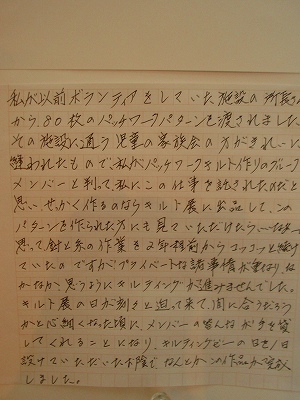 私が以前ボランティアをしていた施設の所長さん
から、80枚のパッチワークパターンを渡されました
その施設に通う児童の家族会の方がきれいに
縫われたもので、私がパッチワークキルト作りのグループ
メンバーと判って、私にこの仕事を託されたのだと
思い、せっかく作るのならキルト展に出品して、この
パターンを作られた方にも見ていただけたらいいなぁーと
思って、針と糸の作業を2年程前からコツコツと続け
ていたのですがプライベートな諸事情が重なり、な
かなか思うようにキルティングが進みませんでした。
キルト展の日が刻々と迫って来て、間に合うだろう
かと心細くなった頃に、メンバーの皆んなが手を貸
してくれることになり、キルティングビーの日を1日
設けていただいたお陰で、なんとかこの作品が完成
しました。